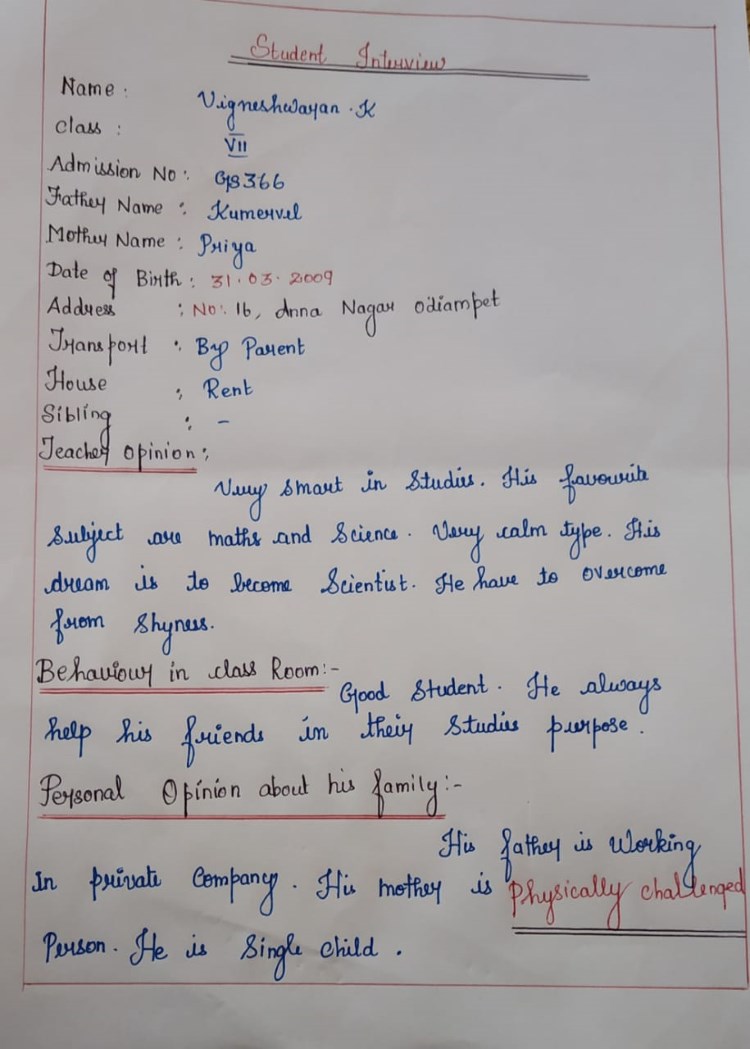 Student Interview
Name : Vigneshwaran . K
Class : VII
Admission No : GS366
Father Name : Kumervel
Mother Name : Priya
Date of Birth : 31.03.2009
Address : No: 16, Anna Nagar Odiampet
Transport : By Parent
House : Rent
Sibling : -
Teacher Opinion :
Very smart in Studies. His favourite
Subject are maths and Science. Very calm type. His
dream is to become Scientist. He have to overcome
from Shyness.
Behaviour in class Room:-
Good Student. He always
help his friends in their Studies purpose.
Personal Opinion about his family:-
His father is Working
In private Company. His mother is Physically challenged
Person. He is Single child.